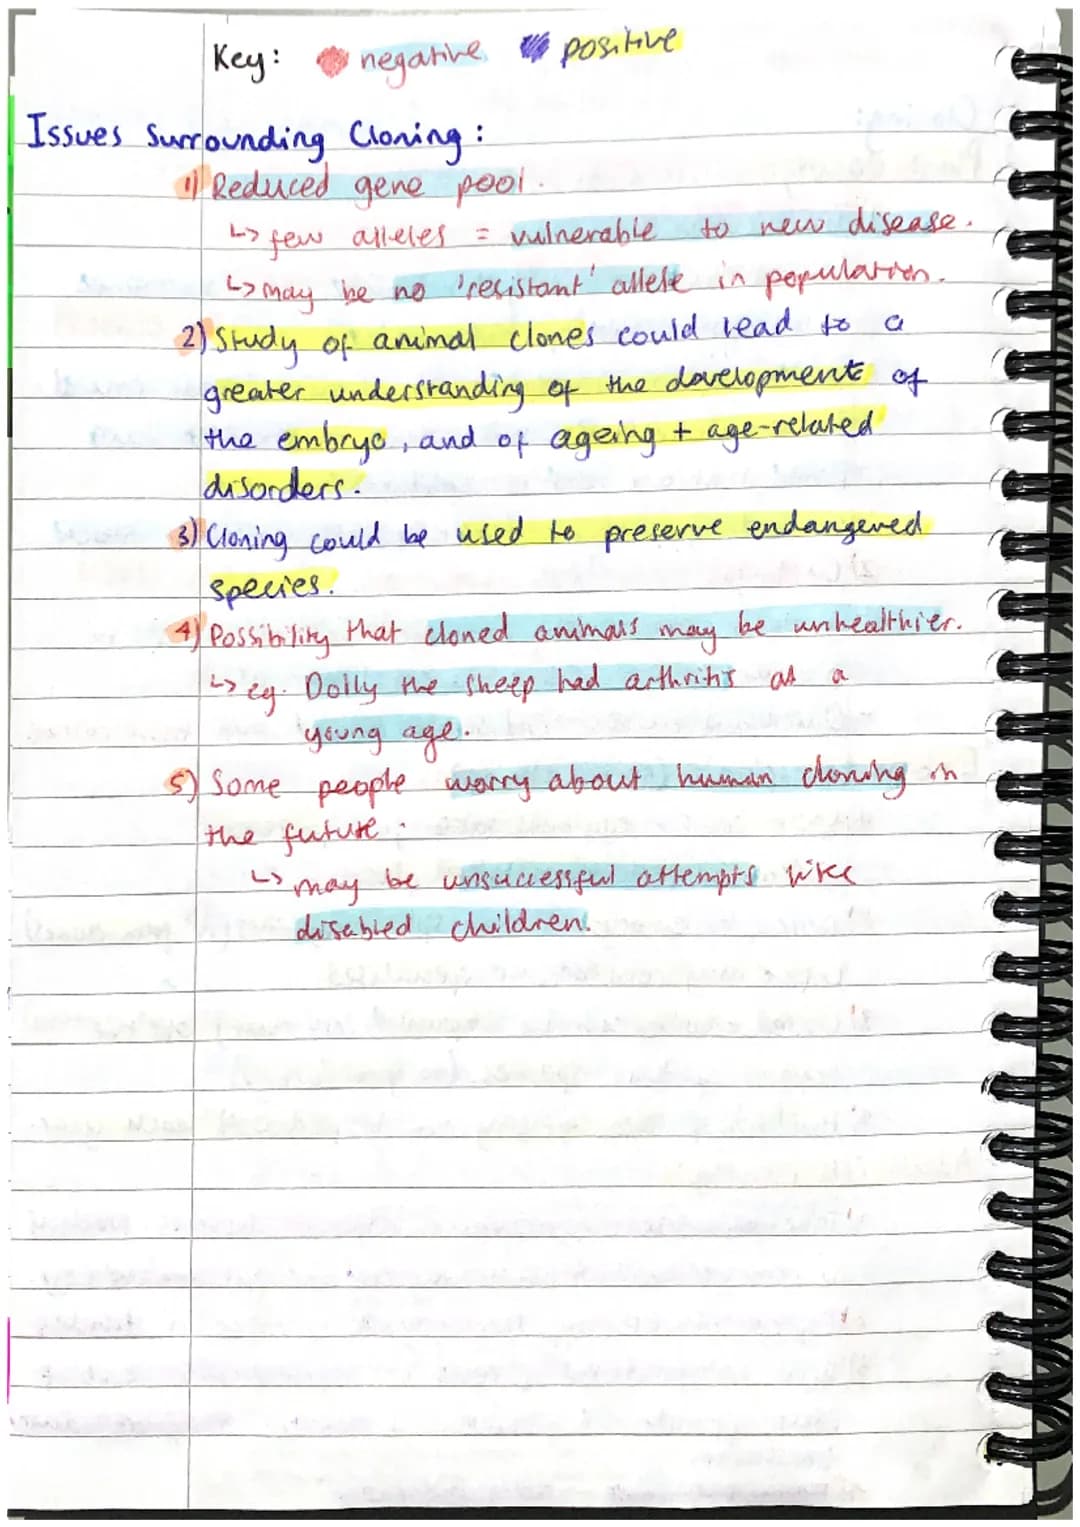 Key: negative positive
Issues Surrounding Cloning:
1) Reduced gene pool.
↳ few alleles = vulnerable to new disease.
↳ may be no 'resistant' allele in population.
2) Study of animal clones could lead to a
greater understanding of the development of
the embryo, and of ageing + age-related
disorders.
3) Cloning could be used to preserve endangered
species.
4) Possibility that cloned animals may be unhealthier.
↳ eg. Dolly the sheep had arthritis at a
young age.
5) Some people worry about human cloning in
the future.
↳ may be unsuccessful attempts like
disabled children.